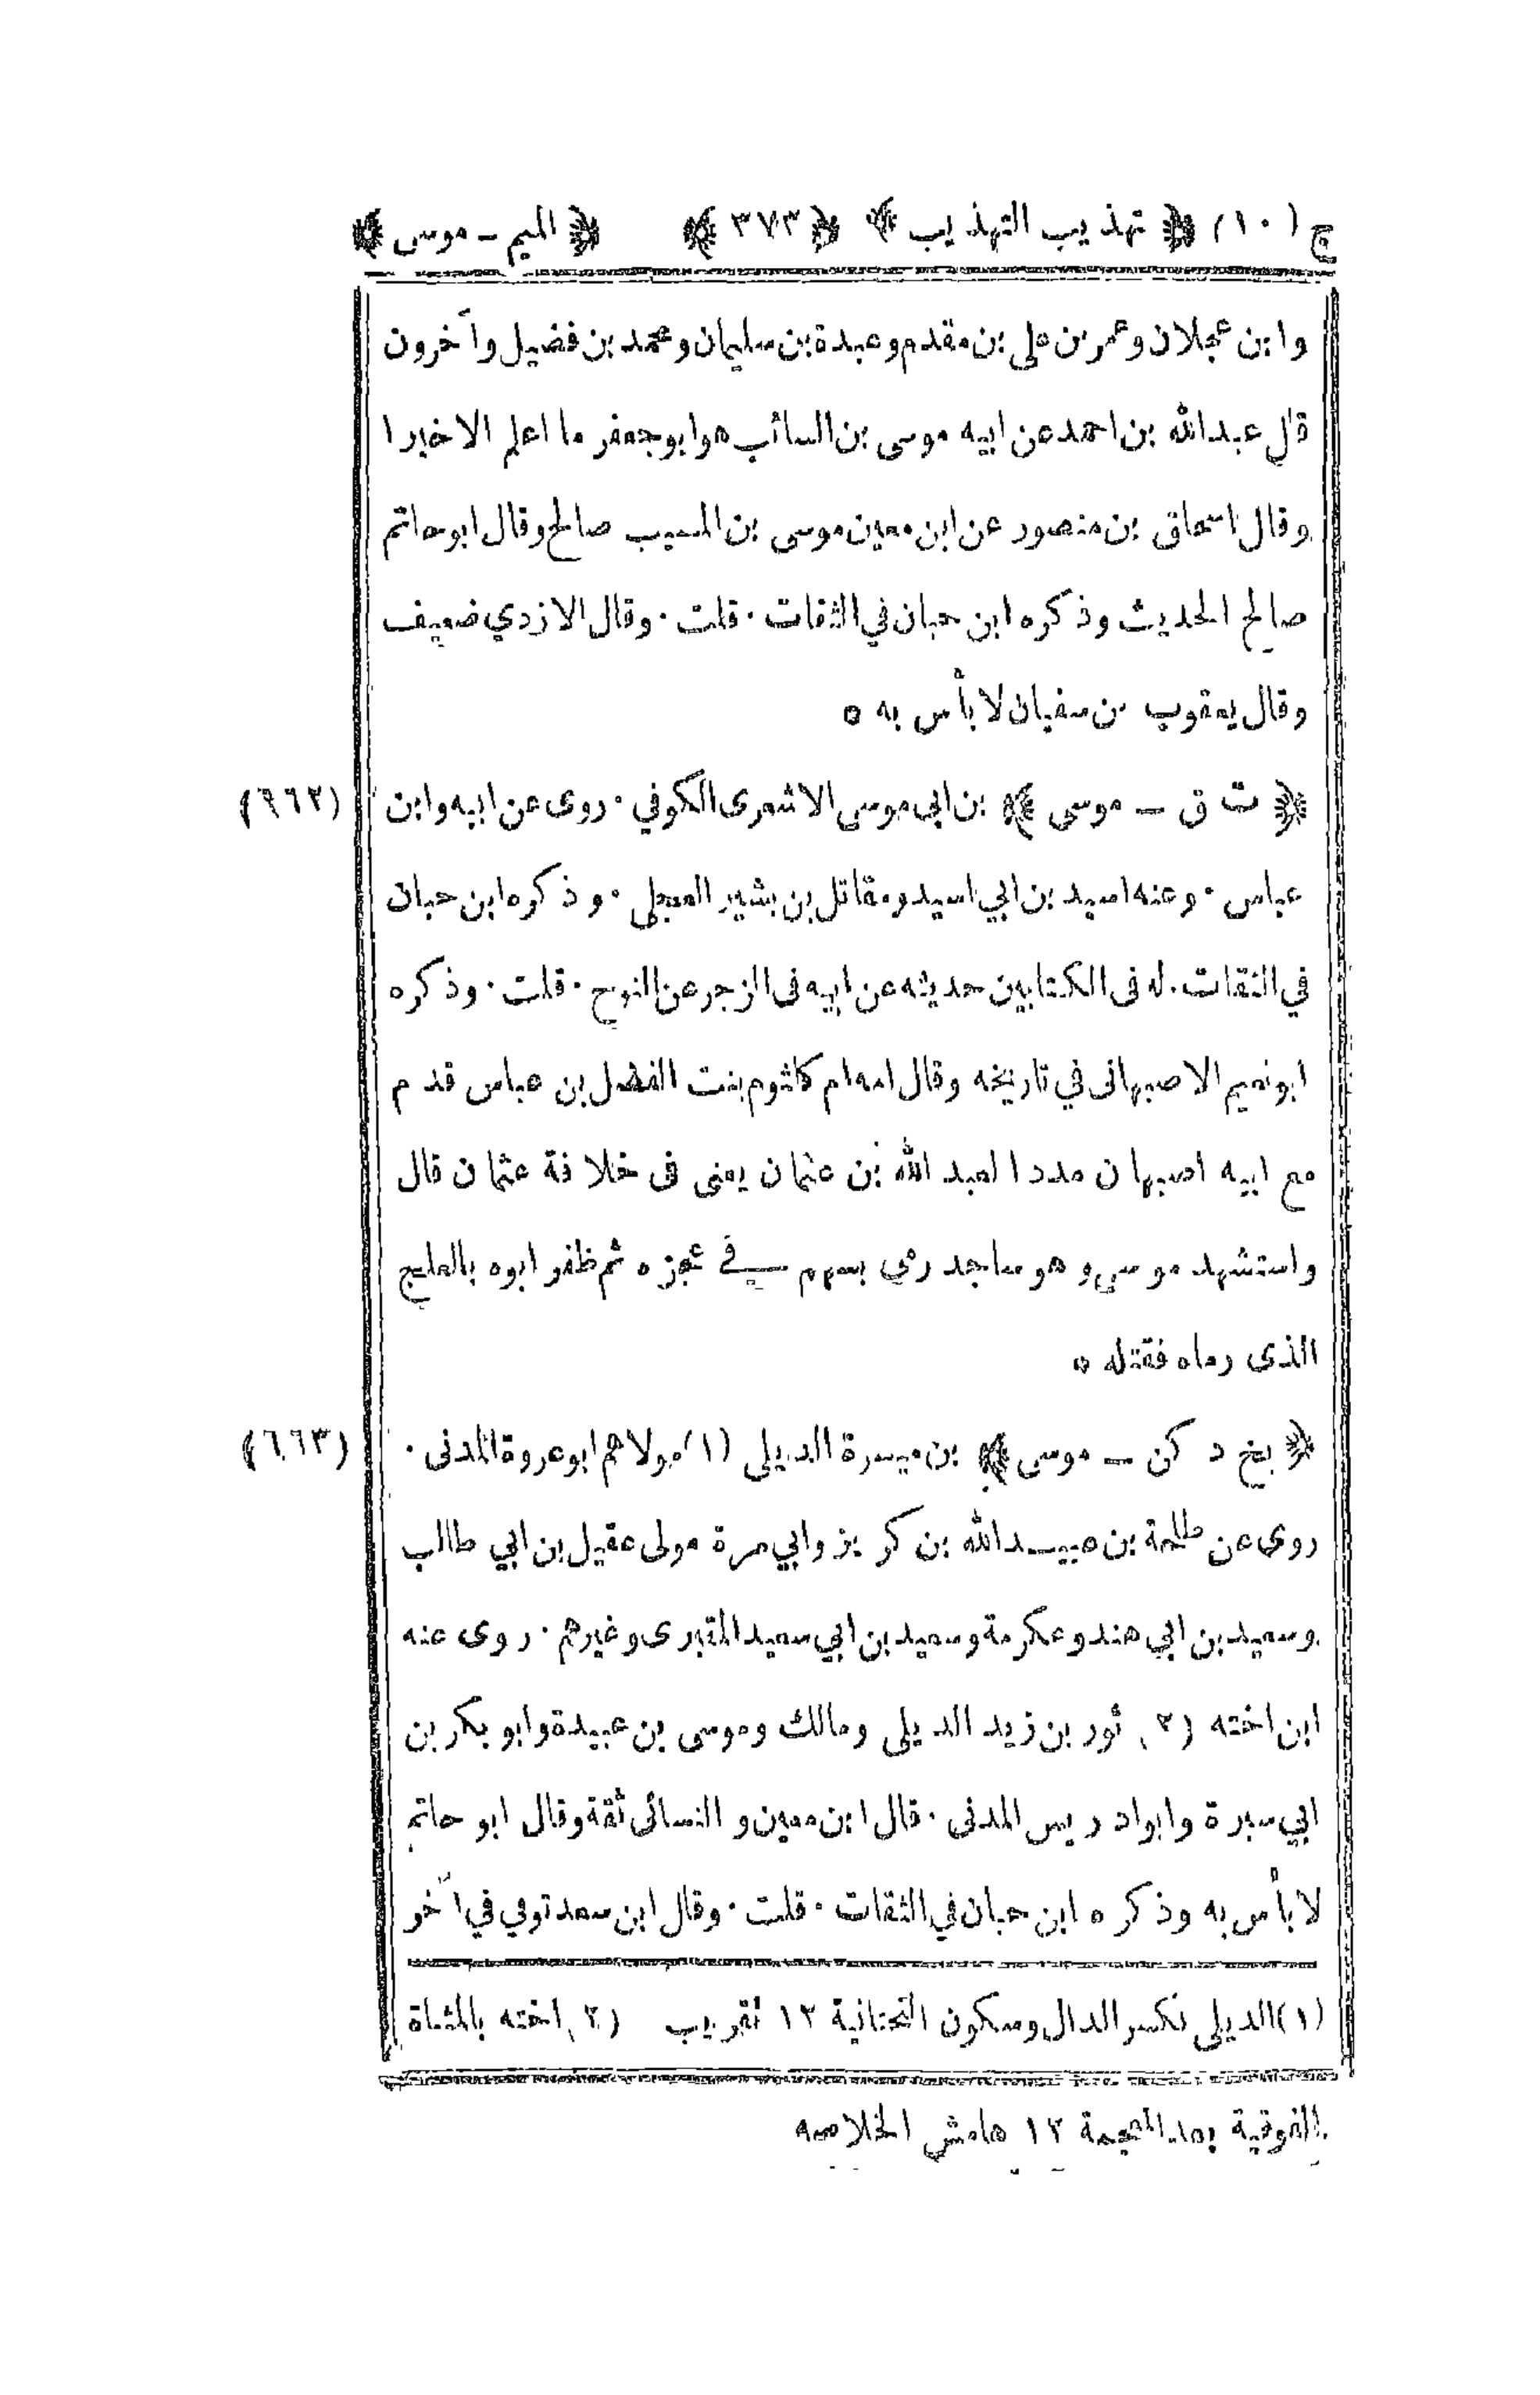 ج (١٠) ﴿ تهذيب التهذيب ﴾ ﴿ ٣٧٣ ﴾ ﴿ الميم - موسى ﴾
وابن عجلان وعمر بن على بن مقدم وعبدة بن سليمان ومحمد بن فضيل وآخرون
قال عبدالله بن احمد عن ابيه موسى بن السائب هو ابوجعفر ما اعلم الا خيرا
وقال اسحاق بن منصور عن ابن معين موسى بن المسيب صالح وقال ابوحاتم
صالح الحديث وذكره ابن حبان في الثقات · قلت · وقال الازدي ضعيف
وقال يعقوب بن سفيان لا بأس به ٥
﴿ ت ق - موسى ﴾ بن ابى موسى الاشعرى الكوفي · روى عن ابيه وابن (٦٦٢)
عباس · وعنه اسيد بن ابي اسيد ومقاتل بن بشير العجلى · وذكره ابن حبان
في الثقات · له فى الكتابين حديثه عن ابيه فى الزجر عن النوح · قلت · وذكره
ابونعيم الاصبهانى في تاريخه وقال امه ام كلثوم بنت الفضل بن عباس قدم
مع ابيه اصبهان مددا لعبد الله بن عثمان يعنى فى خلافة عثمان قال
واستشهد موسى وهو ساجد رمى بسهم في عجزه ثم ظفر ابوه بالعلج
الذى رماه فقتله ٥
﴿ بخ د كن - موسى ﴾ بن ميسرة الديلى (١) مولاهم ابوعروة المدنى · (٦٦٣)
روى عن طلحة بن عبيدالله بن كريز وابي مرة مولى عقيل بن ابي طالب
وسعيد بن ابي هند وعكرمة وسعيد بن ابي سعيد المقبرى وغيرهم · روى عنه
ابن اخته (٢) ثور بن زيد الديلى ومالك وموسى بن عبيدة وابو بكر بن
ابي سبرة وابوادريس المدنى · قال ابن معين والنسائى ثقة وقال ابو حاتم
لا بأس به وذكره ابن حبان في الثقات · قلت · وقال ابن سعد توفي في آخر
(١) الديلى بكسر الدال وسكون التحتانية ١٢ تقريب (٢) اخته بالمثناة
الفوقية بعد المعجمة ١٢ هامش الخلاصه